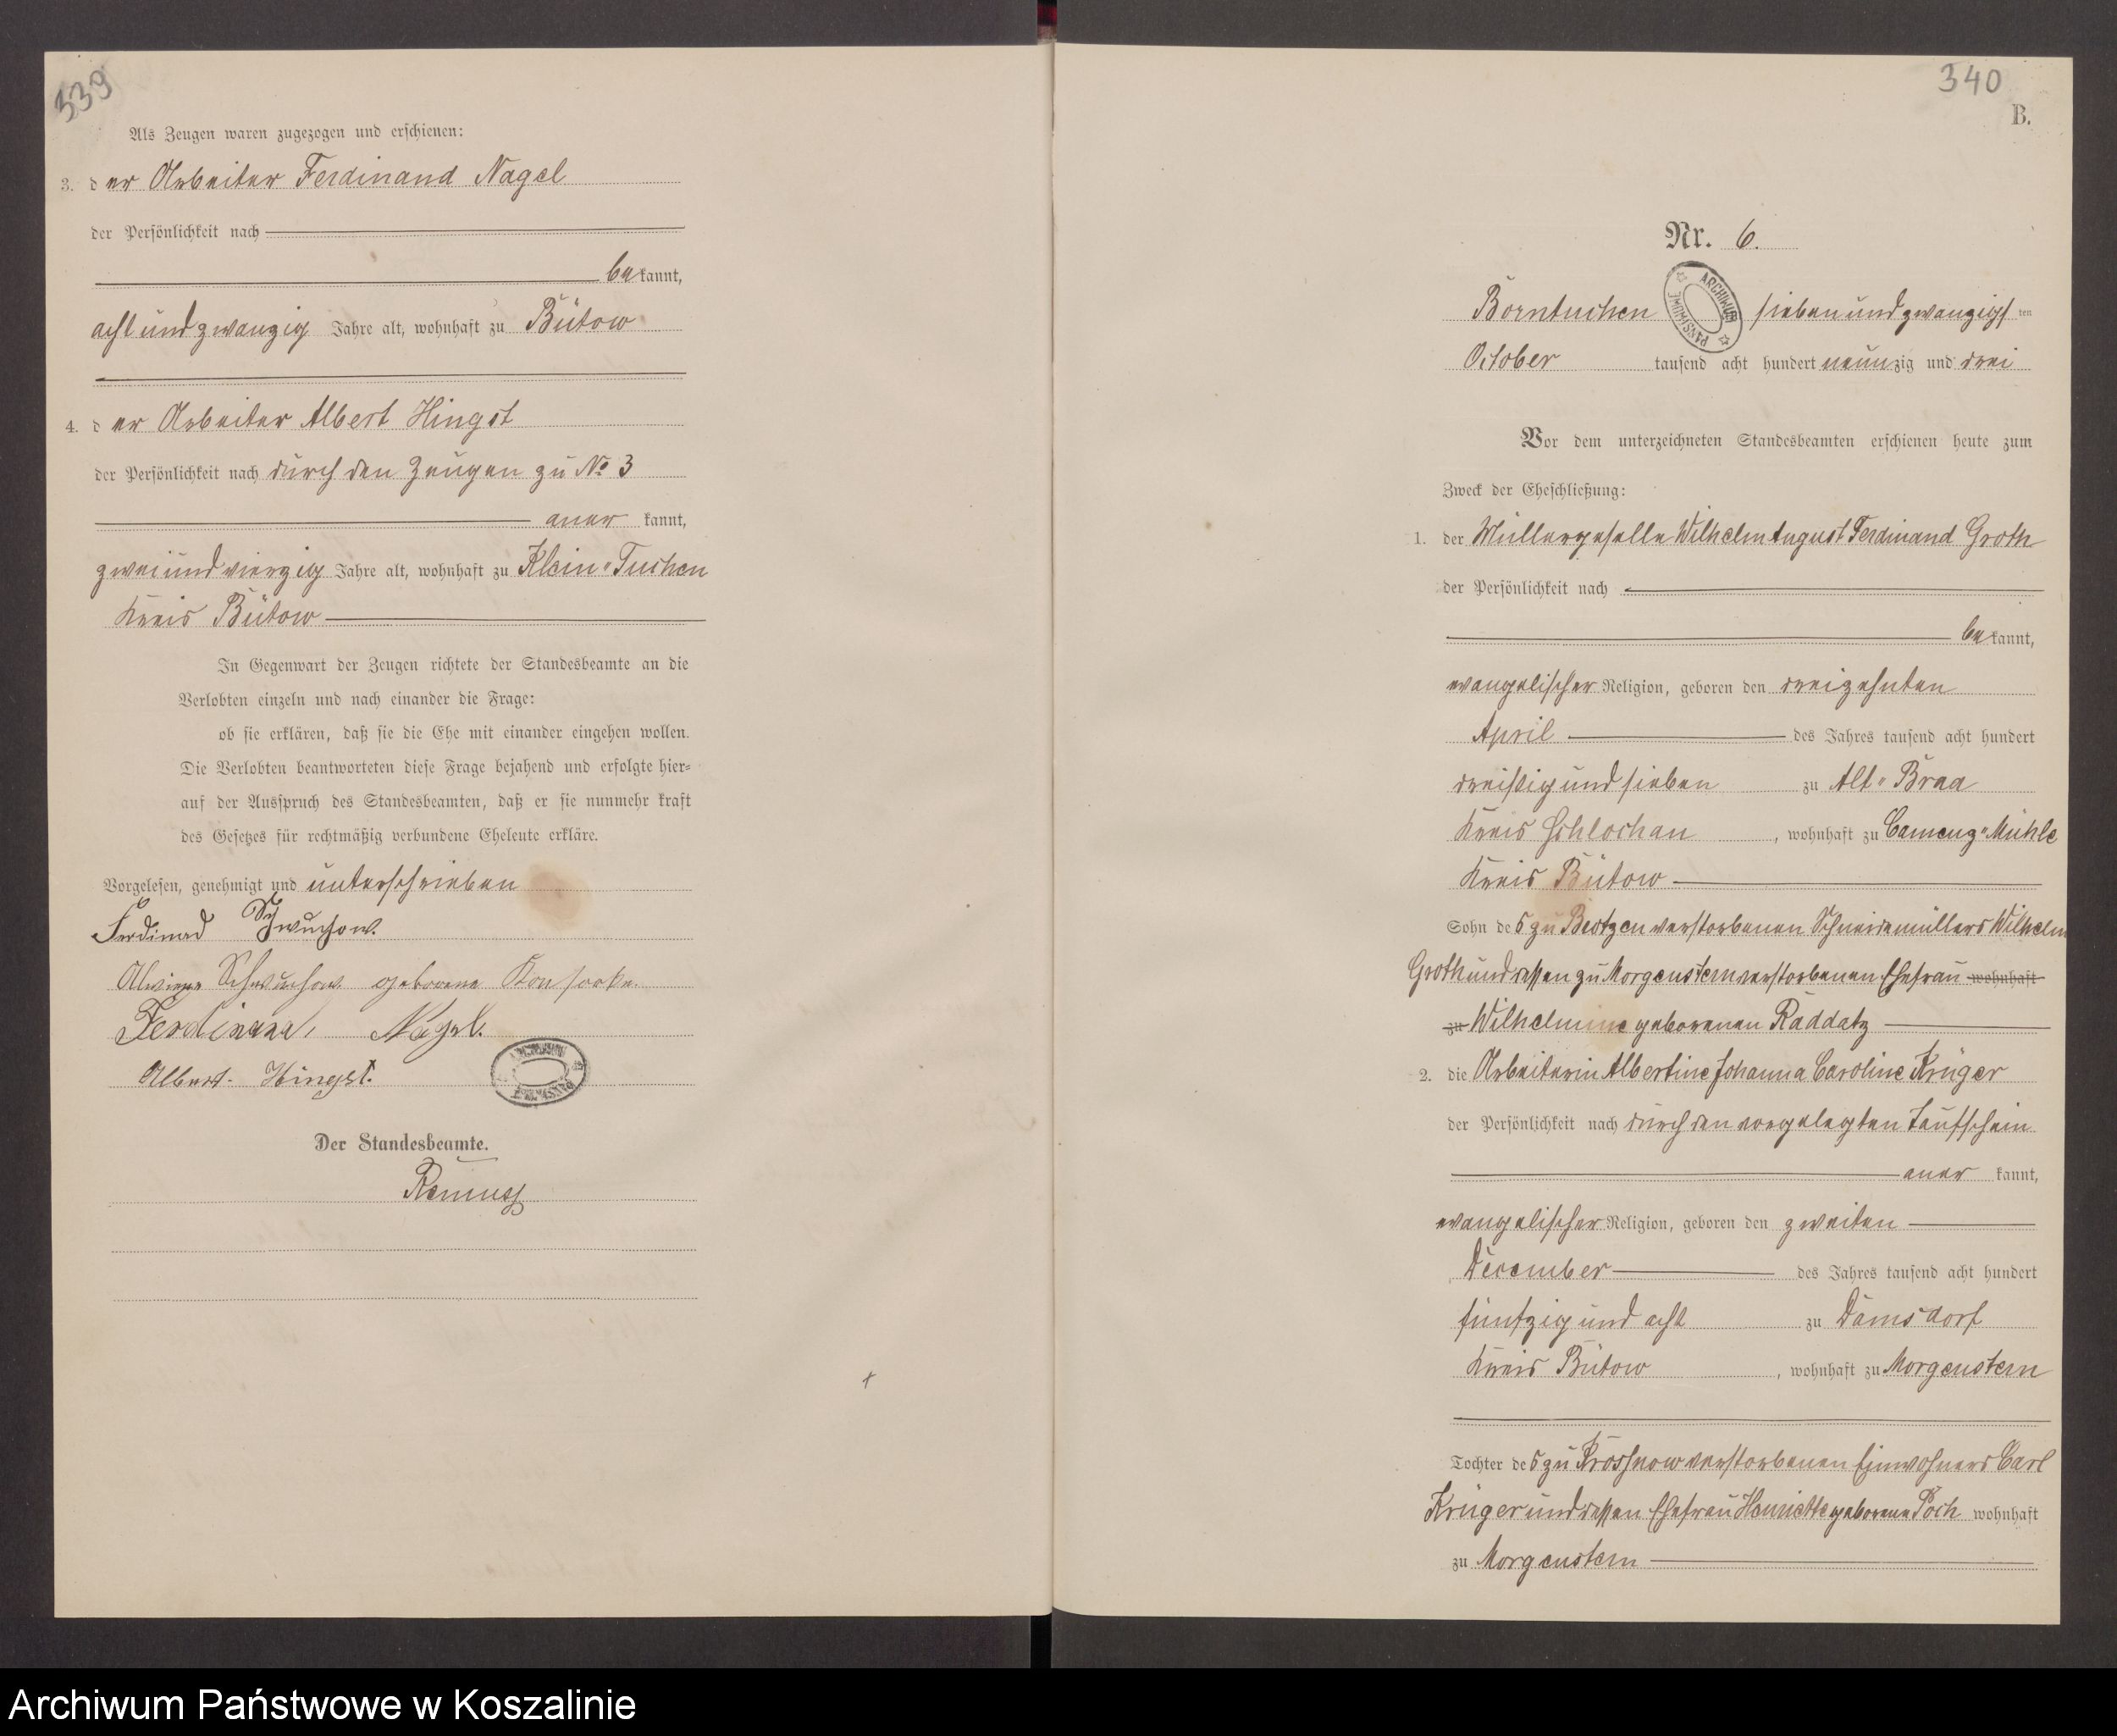 339
Als Zeugen waren zugezogen und erschienen:
3. der Arbeiter Ferdinand Nagel
der Persönlichkeit nach
bekannt,
acht und zwanzig Jahre alt, wohnhaft zu Bütow
4. der Arbeiter Albert Hingst
der Persönlichkeit nach durch den Zeugen zu No 3
anerkannt,
zwei und vierzig Jahre alt, wohnhaft zu Klein-Tuchen
Kreis Bütow
In Gegenwart der Zeugen richtete der Standesbeamte an die
Verlobten einzeln und nach einander die Frage:
ob sie erklären, daß sie die Ehe mit einander eingehen wollen.
Die Verlobten beantworteten diese Frage bejahend und erfolgte hier-
auf der Ausspruch des Standesbeamten, daß er sie nunmehr kraft
des Gesetzes für rechtmäßig verbundene Eheleute erkläre.
Vorgelesen, genehmigt und unterschrieben
Ferdinad Schwuchow.
Alwine Schwuchow geborene
Ferdinand Nagel.
Albert Hingst.
Der Standesbeamte.
Remus
340
B.
Nr. 6.
Borntuchen sieben und zwanzigsten
October tausend acht hundert neunzig und drei
Vor dem unterzeichneten Standesbeamten erschienen heute zum
Zweck der Eheschließung:
1. der Müllergeselle Wilhelm August Ferdinand Groth
der Persönlichkeit nach
bekannt,
evangelischer Religion, geboren den dreizehnten
April des Jahres tausend acht hundert
dreißig und sieben zu Alt-Braa
Kreis Schlochau, wohnhaft zu Camenz-Mühle
Kreis Bütow
Sohn des zu verstorbenen Schneidemüllers Wilhelm
Groth und dessen zu Morgenstern verstorbenen Ehefrau wohnhaft
zu Wilhelmine geborenen Raddatz
2. die Arbeiterin Albertine Johanna Caroline Krüger
der Persönlichkeit nach durch den vorgelegten Taufschein
anerkannt,
evangelischer Religion, geboren den zweiten
December des Jahres tausend acht hundert
fünfzig und acht zu Damsdorf
Kreis Bütow, wohnhaft zu Morgenstern
Tochter des zu Krossnow verstorbenen Einwohners Carl
Krüger und dessen Ehefrau Henriette geborene Poch wohnhaft
zu Morgenstern
ARCHIWUM PAŃSTWOWE
Archiwum Państwowe w Koszalinie